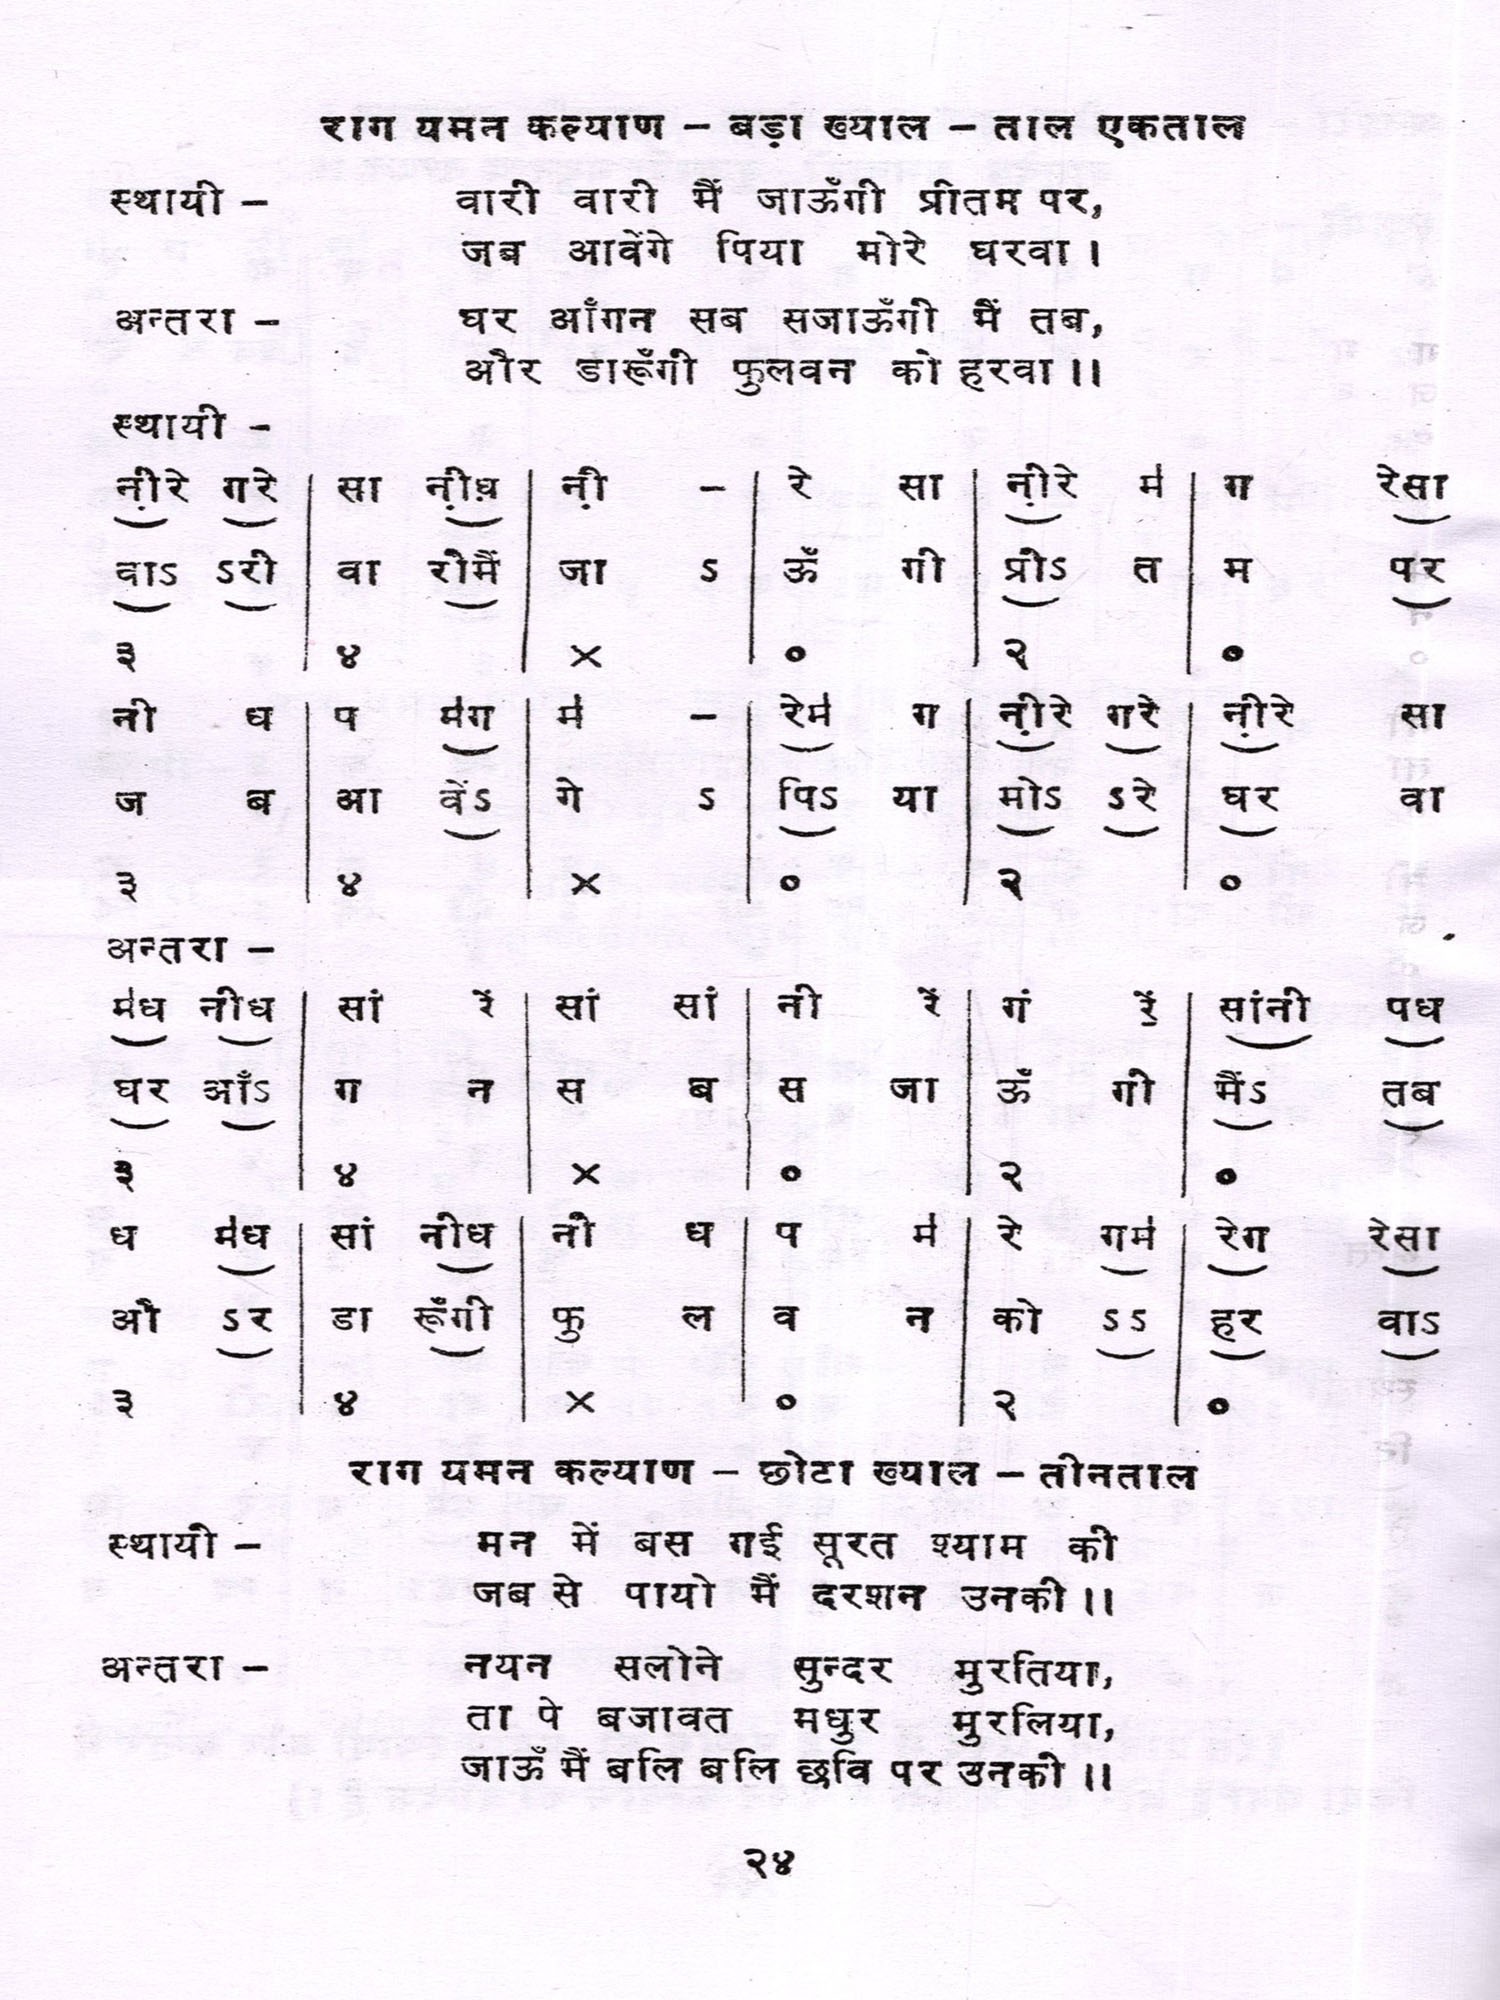 राग यमन कल्याण – बड़ा ख्याल – ताल एकताल
स्थायी – वारी वारी मैं जाऊँगी प्रीतम पर,
जब आवेंगे पिया मोरे घरवा ।
अन्तरा – घर आँगन सब सजाऊँगी मैं तब,
और डारूँगी फुलवन को हरवा ।।
स्थायी –
ऩी़रे गरे | सा ऩी़ध़ | ऩी़ – | रे सा | ऩी़रे म॑ | ग रेसा
वाऽ ऽरी | वा रीमैं | जा ऽ | ऊँ गी | प्रीऽ त | म पर
३ | ४ | × | ० | २ | ०
नी ध | प म॑ग | म॑ – | रेम॑ ग | ऩी़रे गरे | ऩी़रे सा
ज ब | आ वेंऽ | गे ऽ | पिऽ या | मोऽ ऽरे | घर वा
३ | ४ | × | ० | २ | ०
अन्तरा –
म॑ध नीध | सां रें | सां सां | नी रें | गं रें | सांनी पध
घर आँऽ | ग न | स ब | स जा | ऊँ गी | मैंऽ तब
३ | ४ | × | ० | २ | ०
ध म॑ध | सां नीध | नी ध | प म॑ | रे गम॑ | रेग रेसा
औ ऽर | डा रूँगी | फु ल | व न | को ऽऽ | हर वाऽ
३ | ४ | × | ० | २ | ०
राग यमन कल्याण – छोटा ख्याल – तीनताल
स्थायी – मन में बस गई सूरत श्याम की
जब से पायो मैं दरशन उनकी ।।
अन्तरा – नयन सलोने सुन्दर मुरतिया,
ता पे बजावत मधुर मुरलिया,
जाऊँ मैं बलि बलि छवि पर उनकी ।।
२४